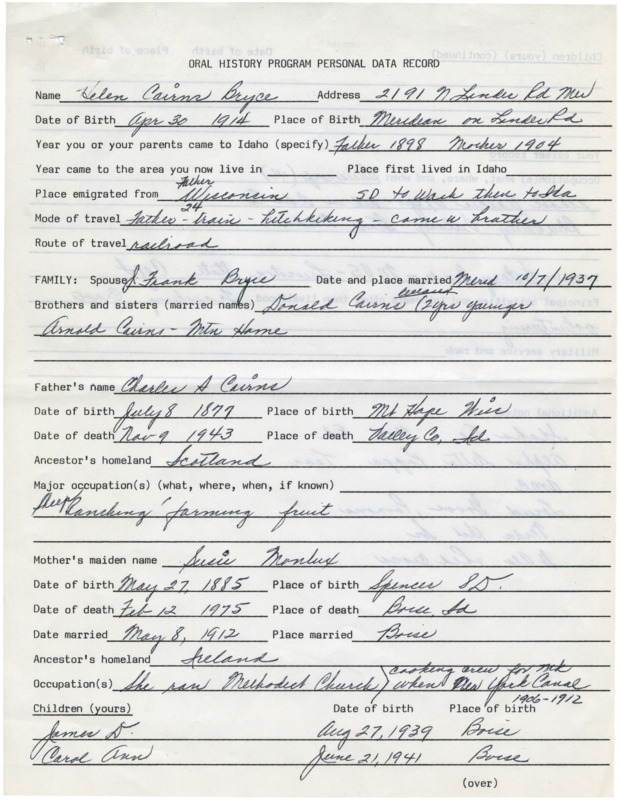 ORAL HISTORY PROGRAM PERSONAL DATA RECORD
Name Helen Cairns Bryce Address 2191 N Linder Rd Mer
Date of Birth Apr 30 1914 Place of Birth Meridian on Linder Rd
Year you or your parents came to Idaho (specify) Father 1898 Mother 1904
Year came to the area you now live in Place first lived in Idaho
Father
Place emigrated from Wisconsin SD to Wash then to Ida
24
Mode of travel Father - train - hitchhiking - came w brother
Route of travel railroad
FAMILY: Spouse J. Frank Bryce Date and place married Merid 10/7/1937
Brothers and sisters (married names) Donald Cairns deceased (2 yrs younger
Arnold Cairns - Mtn Home
Father's name Charles A Cairns
Date of birth July 8 1877 Place of birth Mt Hope Wisc
Date of death Nov 9 1943 Place of death Valley Co, Id
Ancestor's homeland Scotland
Major occupation(s) (what, where, when, if known)
Sheep Ranching farming fruit
Mother's maiden name Susie Monlux
Date of birth May 27, 1885 Place of birth Spencer S.D.
Date of death Feb 12 1975 Place of death Boise Id
Date married May 8, 1912 Place married Boise
Ancestor's homeland Ireland
cooking crew for
Occupation(s) She ran Methodist Church when New York Canal
1906-1912
Children (yours) Date of birth Place of birth
James D. Aug 27, 1939 Boise
Carol Ann June 21, 1941 Boise
(over)